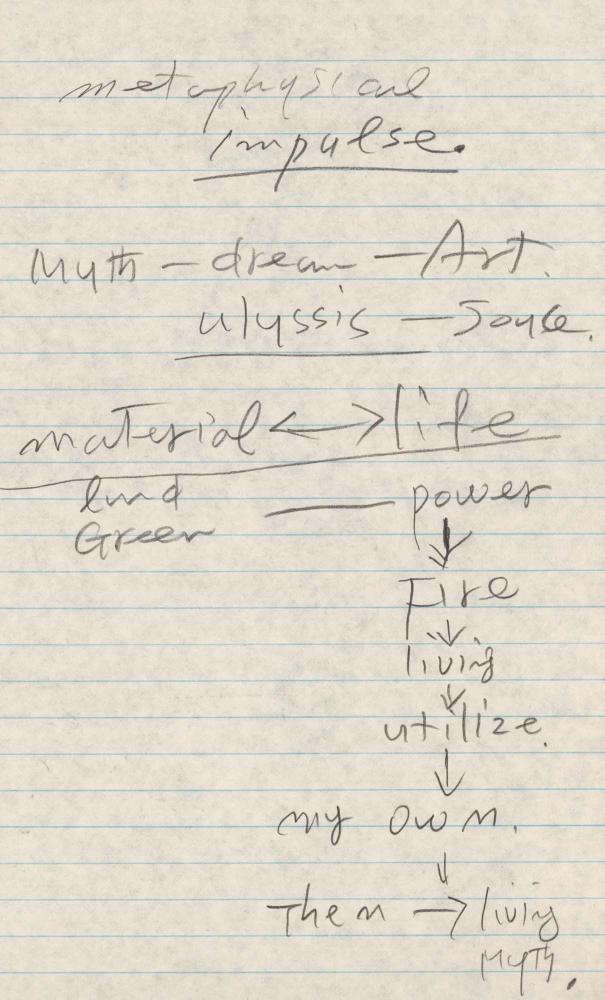 metaphysical
impulse.
Myth — dream — Art.
ulyssis — Joyce.
material ⟷ life
land — power
Green
↓
Fire
↓
living
↓
utilize.
↓
my own.
↓
Then → living
Myth.